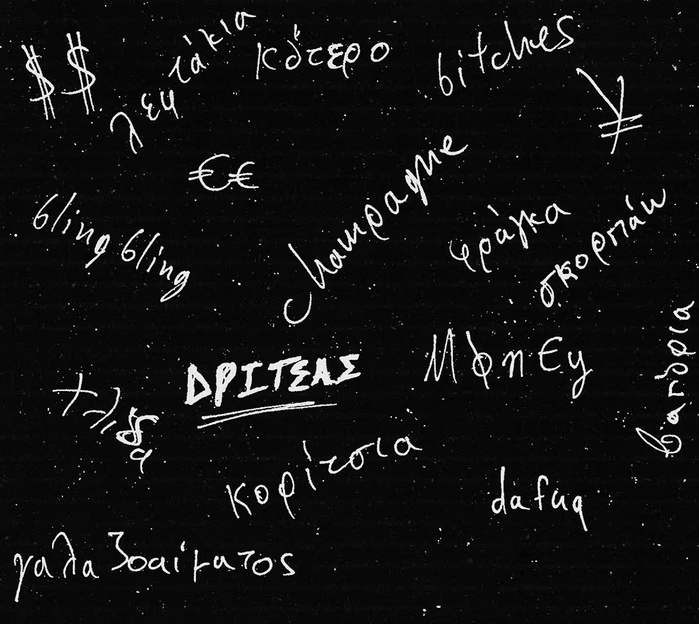 $$
λεφτάκια
κότερο
bitches
¥
€€
bling bling
champagne
φράγκα
σκορπάω
ΔΡΙΤΣΑΣ
MONEY
βαπόρια
χλιδή
κορίτσια
dafuq
γαλαζοαίματος